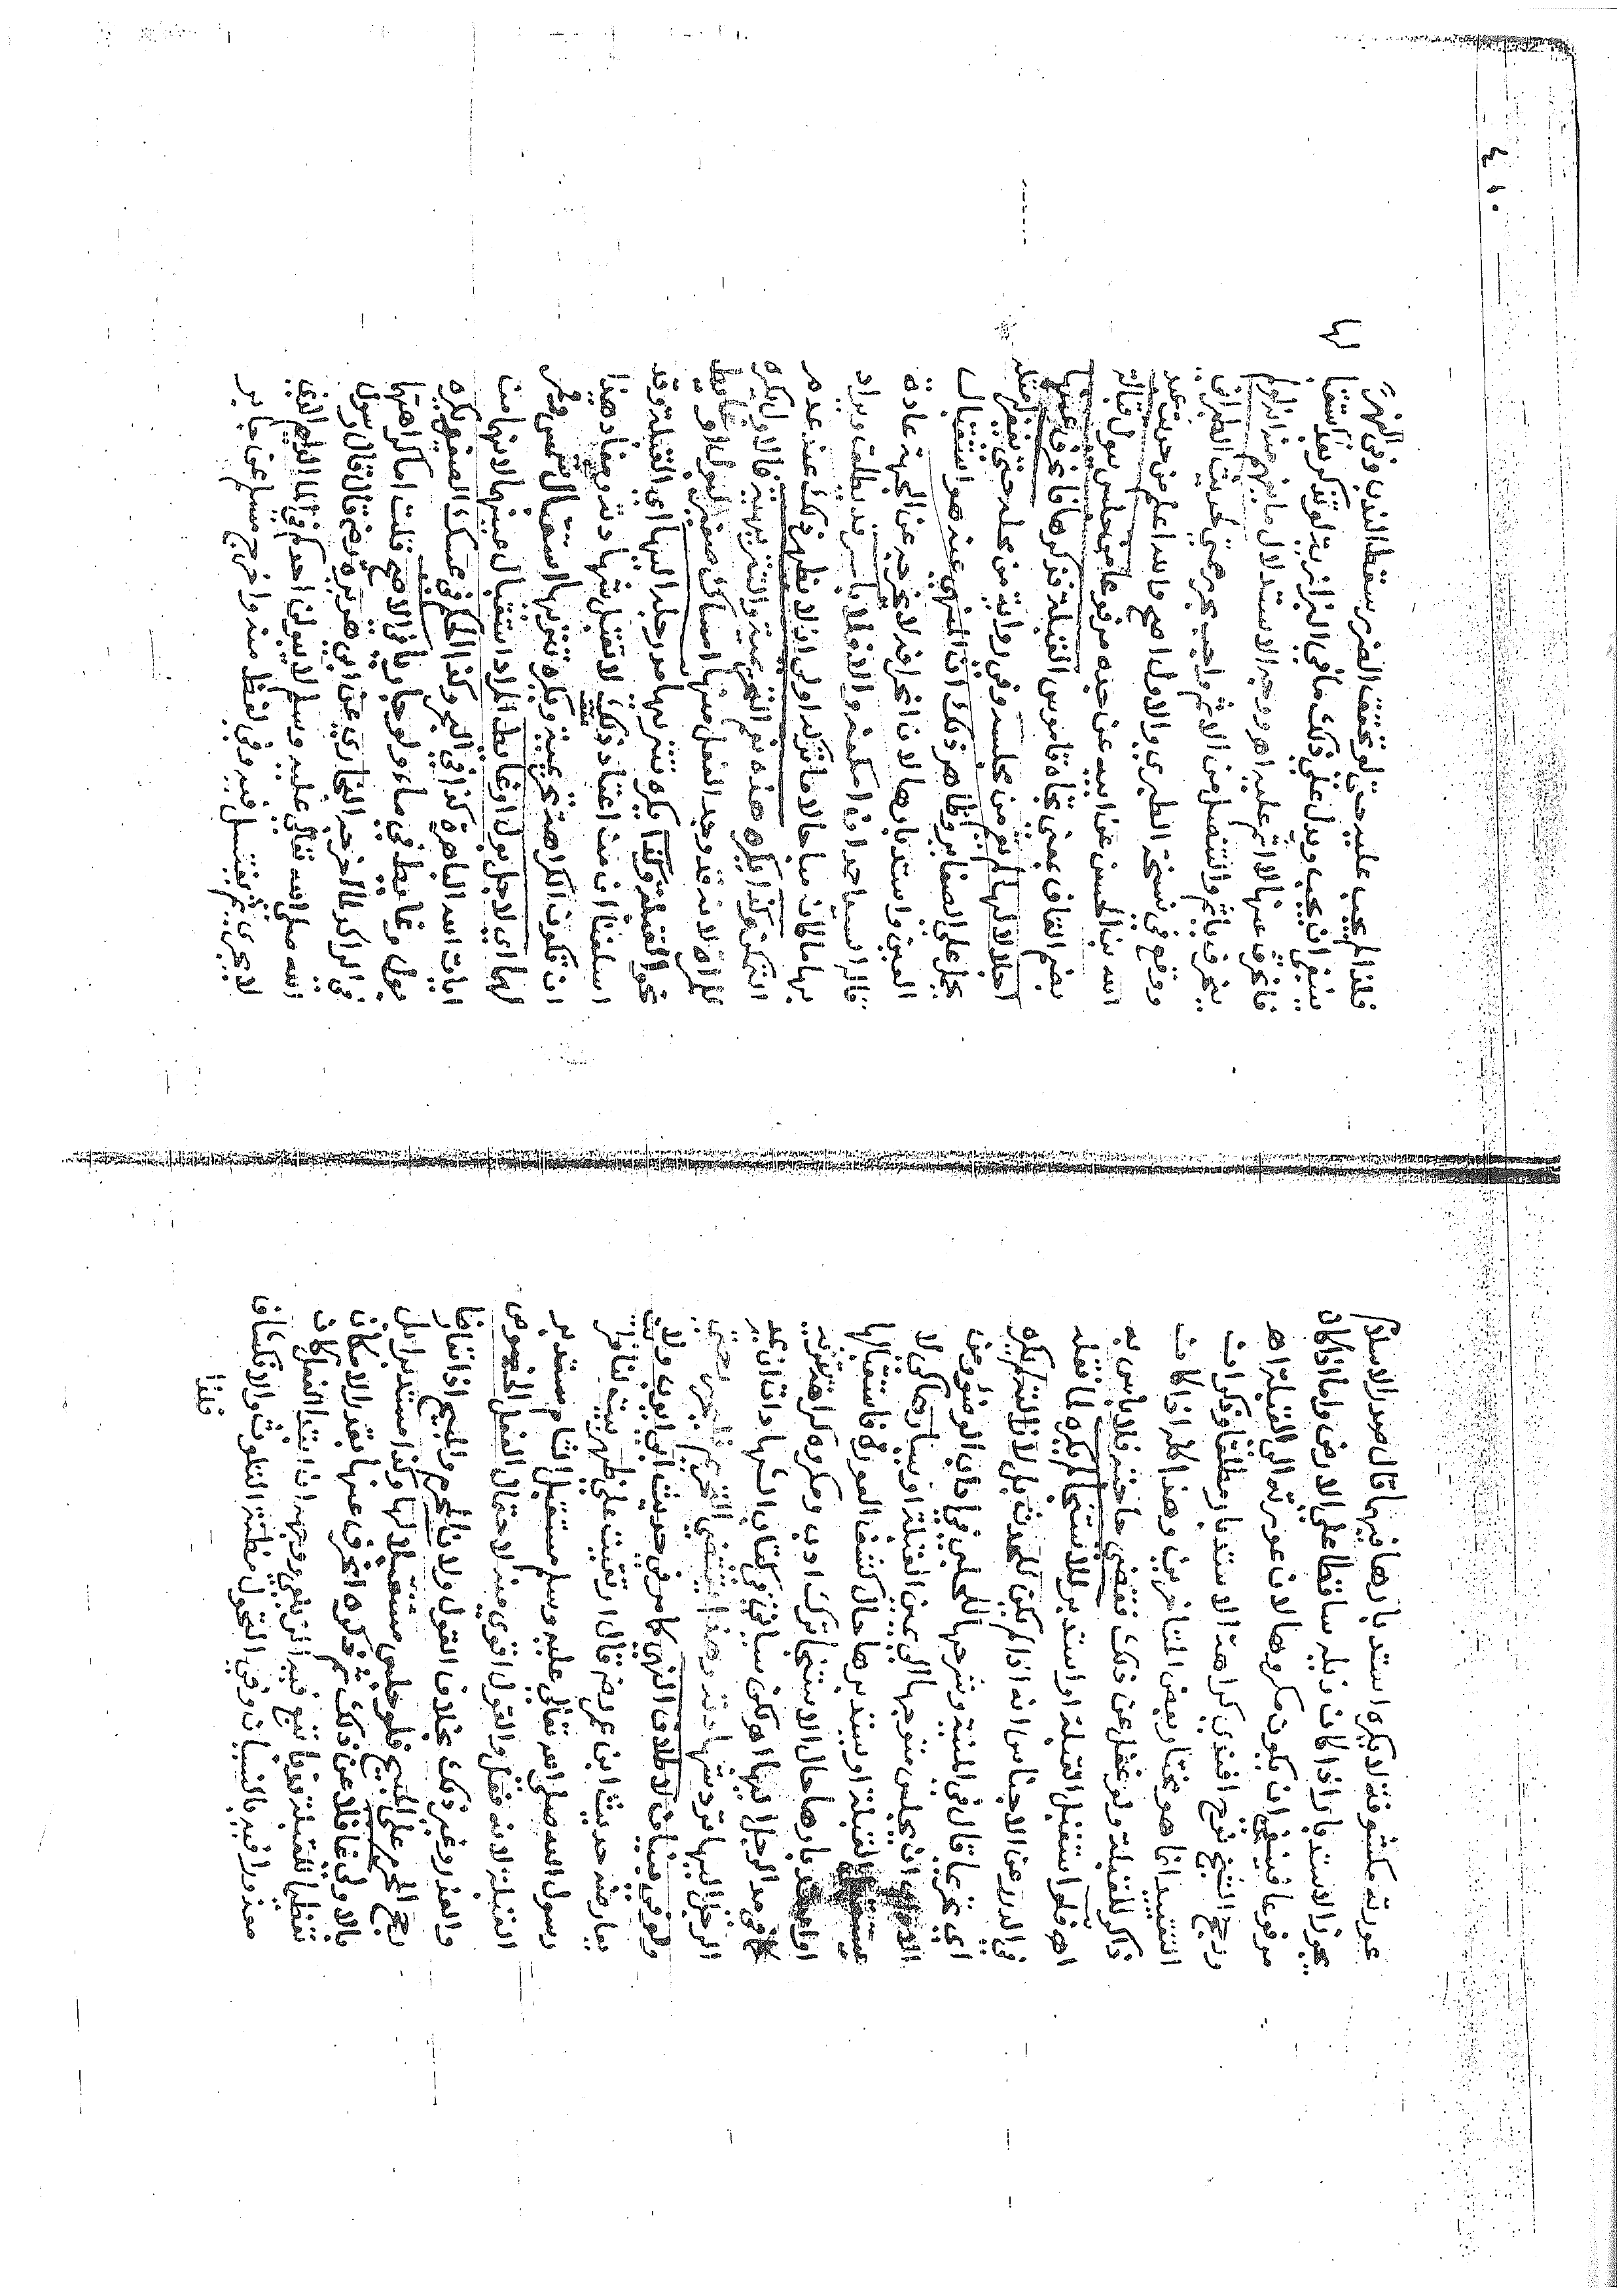 عورته مكشوفة لا يكره استدبارها فيها قال صدر الاسلام
يجوز الاستدبار اذا كان ذيله ساقطا على الارض واما اذا كان
مرفوعا فينبغي ان يكون مكروها لان عورته الى القبلة اه
ورجح الشيخ نوح افندي كراهة الاستدبار مطلقا وذكر ان
التقييد انما هو مختار بعض المتاخرين وهذا كله اذا كان
ذاكرا للقبلة ولو غفل عن ذلك فقضى حاجته فلا باس به
اه فلو استقبل القبلة او استدبر للاستنجاء لم يكره لما نقله
في الدرر عن الاجناس انه اذا لم يكن للحدث بل لازالته لم يكره
اي تحريما قال في المنية وشرحها للحلبي في اداب الوضوء ومن
الاداب ان يجلس متوجها الى يمين القبلة او يسارها كي لا
يستقبل القبلة او يستدبرها حال كشف العورة فاستقبالها
او استدبارها حال الاستنجاء ترك ادب ومكروه كراهة تنزيه
كما في مد الرجل اليها اه لكن سياتي في كتاب الشهادات ان مد
الرجل اليها ترد شهادته وهذا يقتضي التحريم فليحرر
ولو في بنيان لاطلاق النهي كما مر في حديث ابي ايوب ولان
يعارضه حديث ابن عمر رض قال ارتقيت على ظهر بيت
رسول الله صلى الله تعالى عليه وسلم مستقبل الشام مستدبر
القبلة لانه فعل والقول اقوى منه لاحتمال الفعل الخصوص
والعذر وغير ذلك بخلاف القول ولان المحرم والمبيح اذا تعارضا
رجح المحرم على المبيح فلو جلس مستقبلا لها وكذا مستدبرا بل
بالاولى غافلا عن ذلك ثم ذكره انحرف عنها بقدر الامكان
تعظيما للقبلة فيه الزيلعي ووجهه ان ابتداء الفعل كان
معذورا فيه بالنسيان وفي التحول مظنة التلوث والانكشاف
فلذا
فلذا لم يجب عليه حتى لو تحققت العذر سقط الندب وفي النهر
ينبغي ان يجب ويدل على ذلك ما في البزازية لو تذكر بعد استقبا
فانحرف عنها لا اثم عليه اه ووجه الاستدلال
ينحرف ياثم والتنصل من الاثم واجب بحر حتى حديث الطبراني
ووقع في نسخة الطبري والاول اصح والله اعلم من حديث عبد
الله بن الحسن عن ابيه عن جده مرفوعا من جلس يبول قبالة
بضم القاف بمعنى تجاه قاموس القبلة فذكرها فانحرف عنها
اجلالا لها لم يقم من مجلسه وفي رواية من محله حتى يغفر له
يحل على الصغاير وظاهر ذلك ان المنهي عنه هو استقبال
العين واستدبارها لان انحرافه لا يخرجه عن الجهة عادة
قاله السيد احمد ان امكنه والا فلا باس به يطلق ويراد
بها ما كان مباحا لا ما تركه اولى اذ لا يظهر ذلك عند عدم
التمكن وكذا يكره هذه تعم التحريمية والتنزيهية فالاول يكره
للمراة لانه قد وجد الفعل منها امساك صغير لبول او غايط
نحو القبلة وكذا يكره تنزيها مد رجله اليها اي القبلة وقد
اسلفنا ان من اعتاد ذلك لا تقبل شهادته ومفاد هذا
ان تكون الكراهة تحريمية ويكره تنزيها استقبال شمس وقمر
لهما اي لاجل بول او غايط المراد استقبال عينهما لانهما من
ايات الله الباهرة كذا في البحر وكذا الحكم في عكسه
بول وغايط في ماء ولو جاريا في الاصح قلت اما كراهتهما
في الراكد لما اخرجه البخاري عن ابي هريرة رض قال قال رسول
الله صلى الله تعالى عليه وسلم لا يبولن احدكم في الماء الدايم الذي
لا يجري ثم يغتسل فيه وفي لفظ منه واخرج مسلم عن جابر